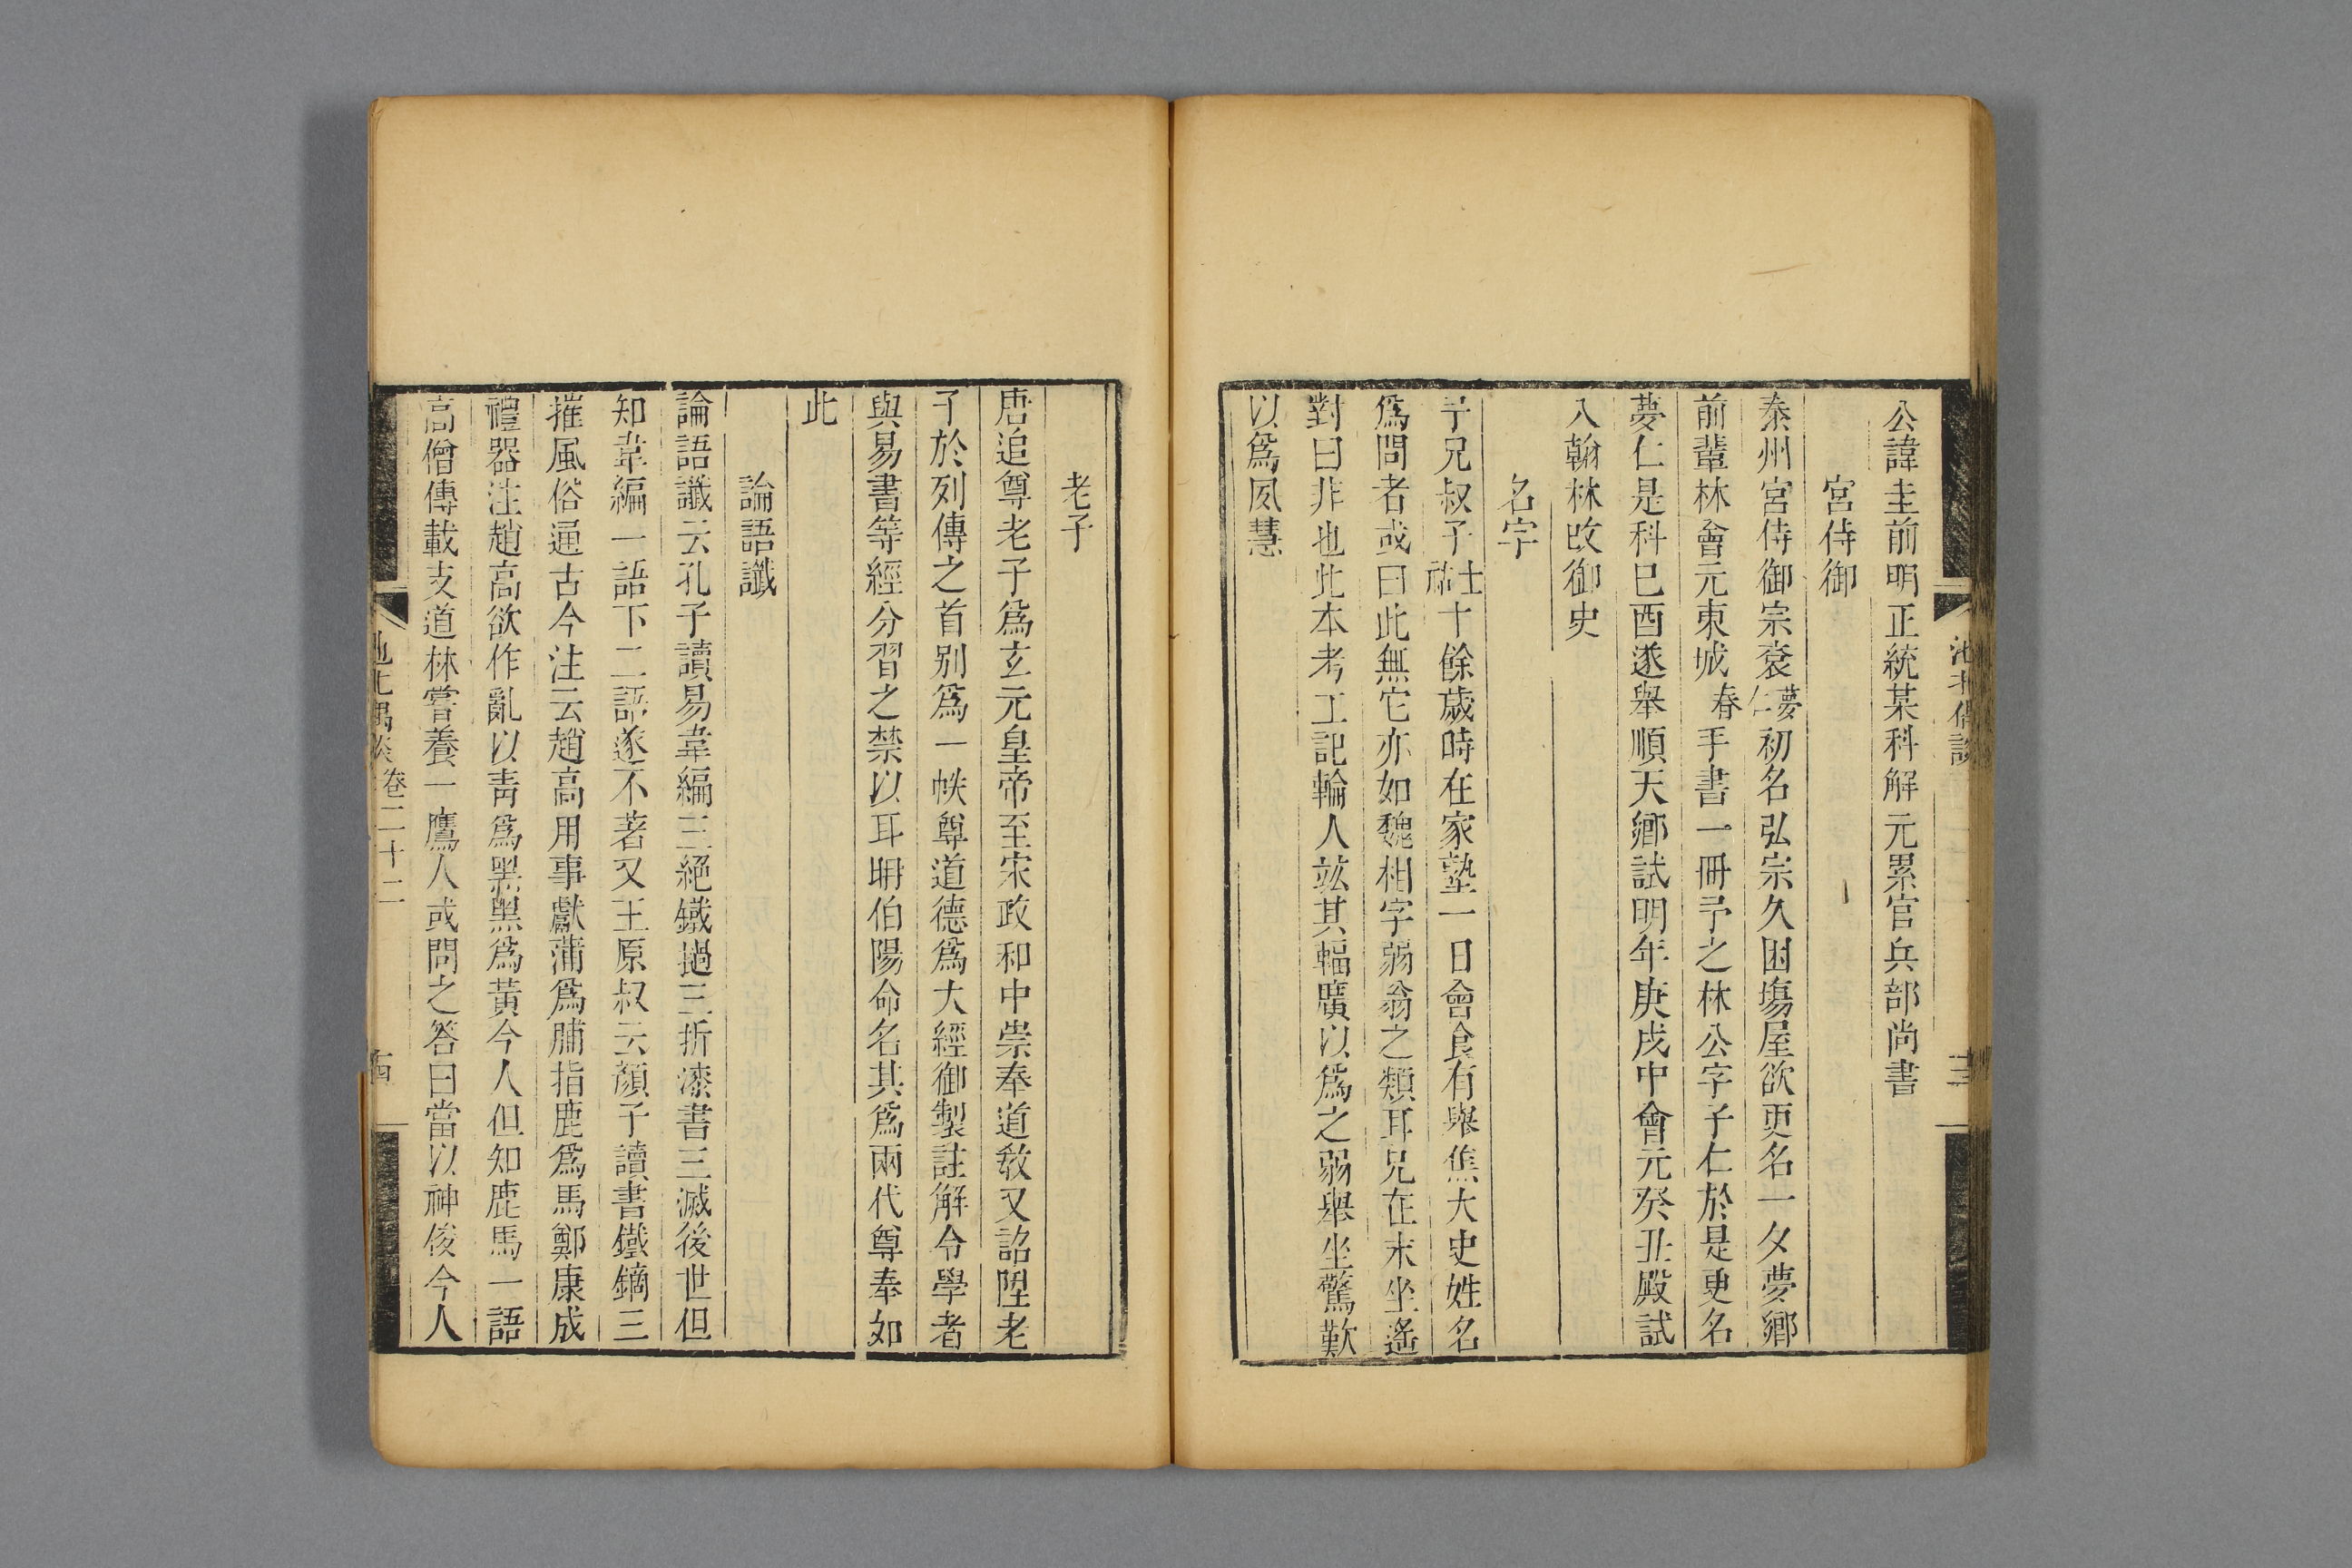 公諱圭前明正統某科解元累官兵部尚書
宮侍御
泰州宮侍御宗袞夢仁初名弘宗久困塲屋欲更名一夕夢鄉
前輩林會元東城春手書一冊予之林公字子仁於是更名
夢仁是科己酉遂舉順天鄉試明年庚戌中會元癸丑殿試
入翰林改御史
名字
予兄叔子士祜十餘歲時在家塾一日會食有舉焦大史姓名
爲問者或曰此無它亦如魏相字弱翁之類耳兄在末坐遙
對曰非也此本考工記輪人竑其輻廣以爲之弱舉坐驚歎
以爲夙慧
老子
唐追尊老子爲玄元皇帝至宋政和中崇奉道敎又詔陞老
子於列傳之首別爲一帙尊道德爲大經御製註解令學者
與易書等經分習之禁以耳耼伯陽命名其爲兩代尊奉如
此
論語讖
論語讖云孔子讀易韋編三絕鐵擿三折漆書三滅後世但
知韋編一語下二語遂不著又王原叔云顏子讀書鐵鏑三
摧風俗通古今注云趙高用事獻蒲爲脯指鹿爲馬鄭康成
禮器注趙高欲作亂以靑爲黑黑爲黃今人但知鹿馬一語
高僧傳載支道林嘗養一鷹人或問之答曰當以神俊今人
池北偶談 卷二十二 十四